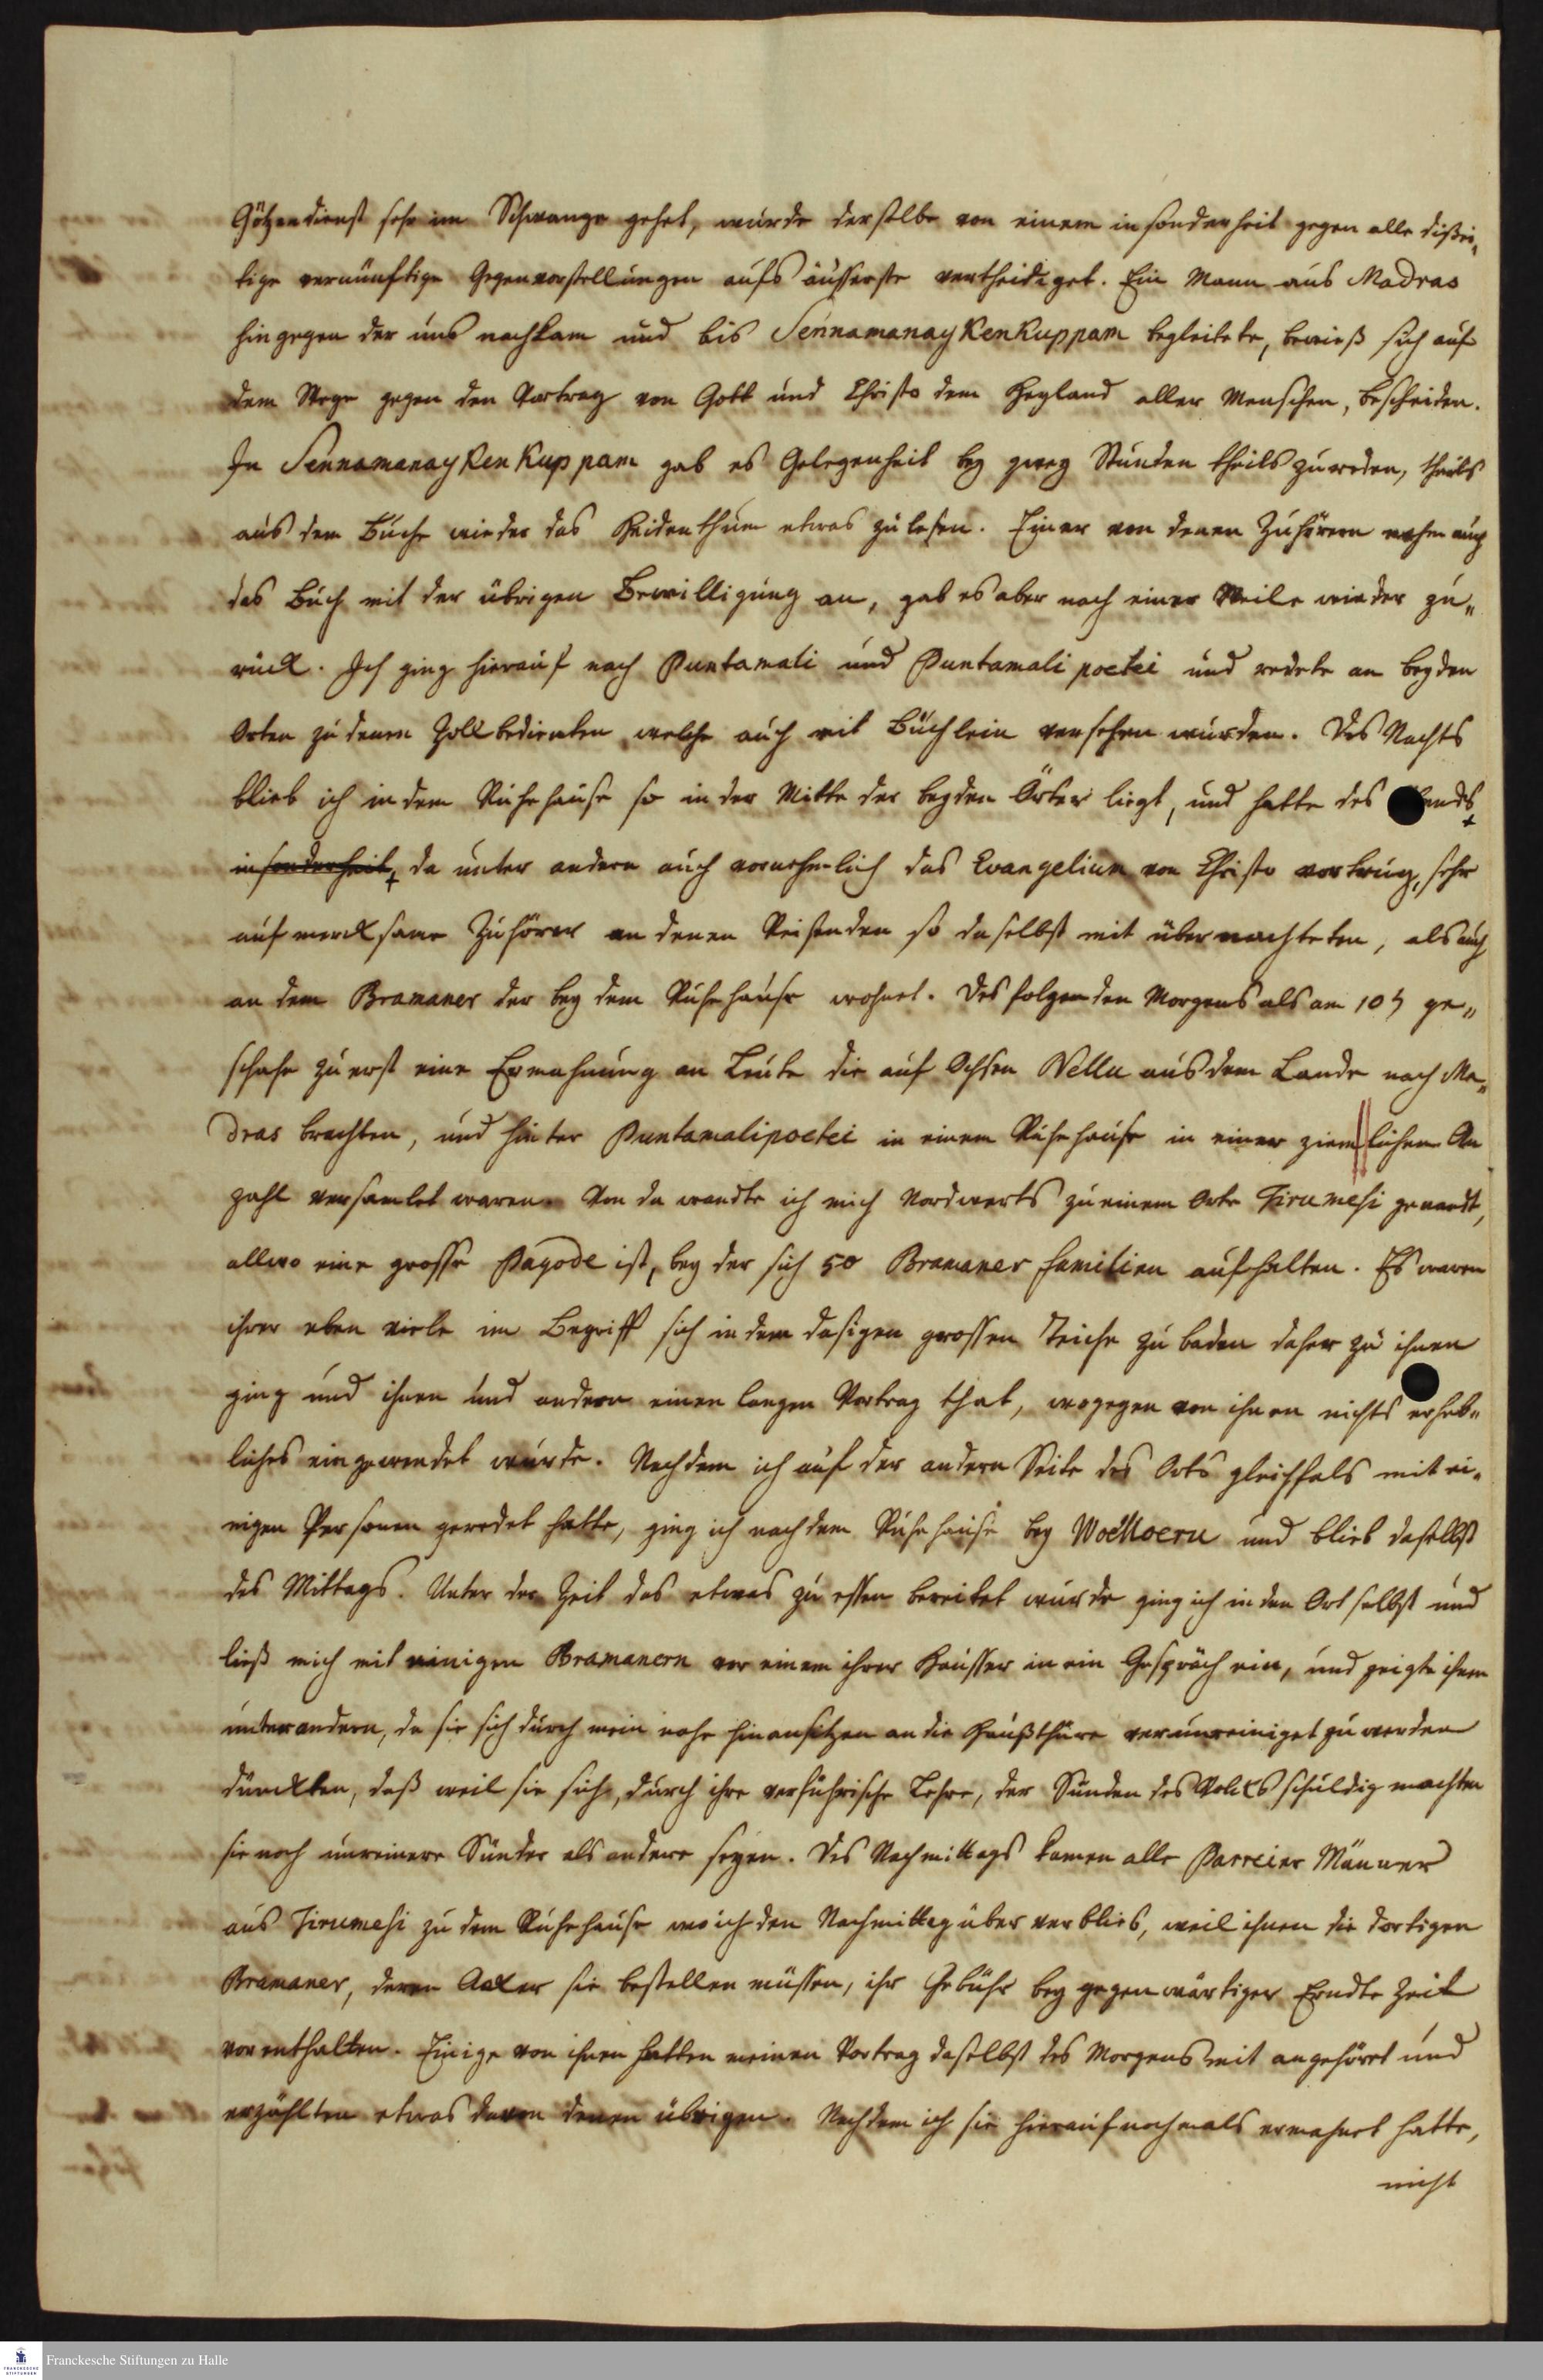 Götzendienst sehr im Schwange gehet, wurde derselbe von einem insonderheit gegen alle dißei-
tige vernünftige Gegenvorstellungen aufs äusserste vertheidiget. Ein Mann aus Madras
hingegen der uns nachkam und bis Sennamanaykenkuppam begleitete, bewieß sich auf
dem Wege gegen den Vortrag von Gott und Christo dem Heyland aller Menschen, bescheiden.
In Sennamanaykenkuppam gab es Gelegenheit bey zwey Stunden theils zu reden, theils
aus dem Buche wieder das Heidenthum etwas zu lesen. Einer von denen Zuhörern nahm auch
das Buch mit der übrigen Bewilligung an, gab es aber nach einer Weile wieder zu„
rück. Ich ging hierauf nach Puntamali und Puntamali poetei und redete an beyden
Orten zu denen Zollbedienten welche auch mit Büchlein versehen wurden. Des Nachts
blieb ich in dem Ruhehause so in der Mitte der beyden Örter liegt, und hatte des ends
insonderheit, da unter andern auch vornehmlich das Evangelium von Christo vortrug, sehr
aufmercksame Zuhörer an denen Reisenden so daselbst mit übernachteten, als auch
an dem Bramaner der bey dem Ruhehause wohnet. Des folgenden Morgens als am 10 ♄ ge„
schahe zuerst eine Ermahnung an Leute die auf Ochsen Nellu aus dem Lande nach Ma„
dras brachten, und hinter Puntamalipoetei in einem Ruhehause in einer ziemlichen An
zahl versamlet waren. Von da wandte ich mich Nordwerts zu einem Orte Tirumesi genandt,
allwo eine grosse Pagode ist, bey der sich 50 Bramaner familien aufhalten. Es waren
ihrer eben viele im Begriff sich in dem dasigen grossen Teiche zu baden daher zu ihnen
ging und ihnen und andern einen langen Vortrag that, wogegen von ihnen nichts erheb„
liches eingewendet wurde. Nachdem ich auf der andern Seite des Orts gleichfals mit ei„
nigen Personen geredet hatte, ging ich nach dem Ruhehause bey Woelloeru und blieb daselbst
des Mittags. Unter der Zeit das etwas zu essen bereitet wurde ging ich in den Ort selbst und
ließ mich mit einigen Bramanern vor einem ihrer Häusser in ein Gespräch ein, und zeigte ihnen
unter andern, da sie sich durch mein nahe hinansitzen an die Haußthüre verunreiniget zu werden
dünckten, daß weil sie sich, durch ihre verführische Lehre, der Sünden des Volcks schuldig machten
sie noch unreinere Sünder als andere seyen. Des Nachmittags kamen alle Parreier Männer
aus Tirumesi zu dem Ruhehause wo ich den Nachmittag über verblieb, weil ihnen die dortigen
Bramaner, deren Acker sie bestellen müssen, ihr Gebühr bey gegenwärtiger Erndte Zeit
vorenthalten. Einige von ihnen hatten meinen Vortrag daselbst des Morgens mit angehöret und
erzählten etwas davon denen übrigen. Nachdem ich sie hierauf nochmals ermahnet hatte,
nicht
Franckesche Stiftungen zu Halle